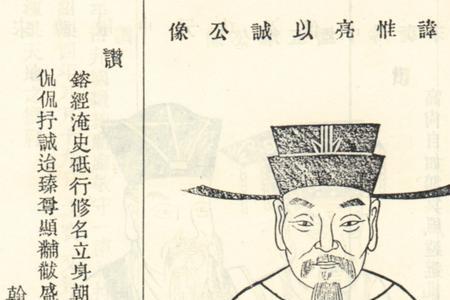 諱惟亮以誠公像
讚
鎔經淹史砥行修名立身朝
侃侃抒誠迨臻尊顯黼黻盛
翰